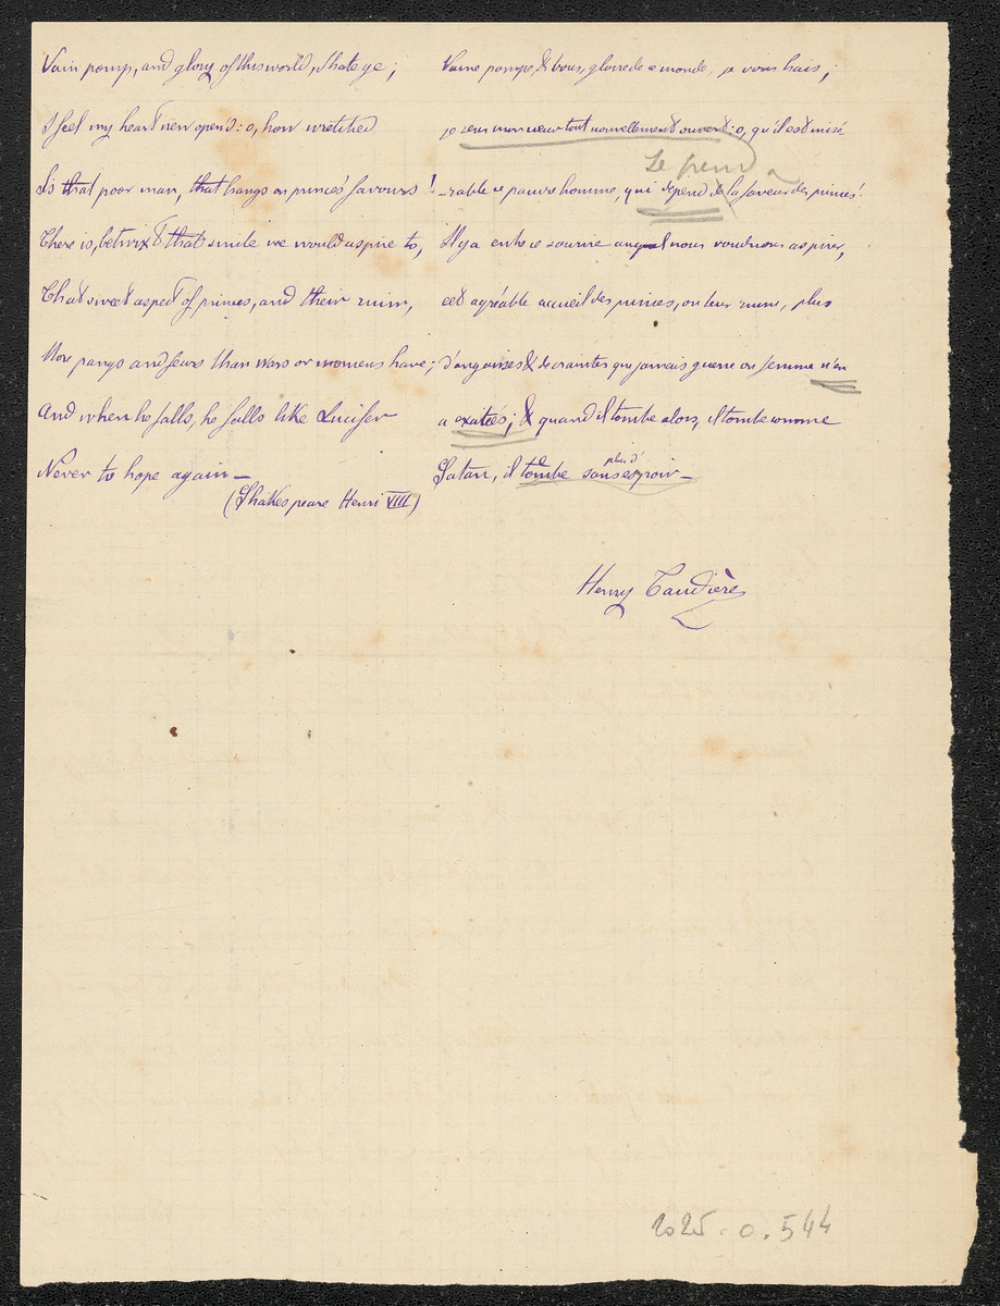 Vain pomp, and glory of this world, I hate ye;
I feel my heart new open'd: o, how wretched
Is that poor man, that hangs on princes' favours!
There is, betwixt that smile we would aspire to,
That sweet aspect of princes, and their ruin,
More pangs and fears than wars or womens have;
And when he falls, he falls like Lucifer
Never to hope again —
(Shakespeare Henri VIII)
Vaine pompe, & vous, gloire de ce monde, je vous hais;
je sens mon cœur tout nouvellement ouvert: o, qu'il est misé
Se pend à
-rable ce pauvre homme, qui dépend de la faveur des princes!
Il y a entre ce sourire auquel nous voudrions aspirer,
cet agréable accueil des princes, ou leur ruine, plus
d'angoisses & de craintes que jamais guerre ou femme n'en
a excitées; & quand il tombe alors, il tombe comme
plus d'
Satan, il tombe sans espoir —
Henry Taudière
2025.0.544